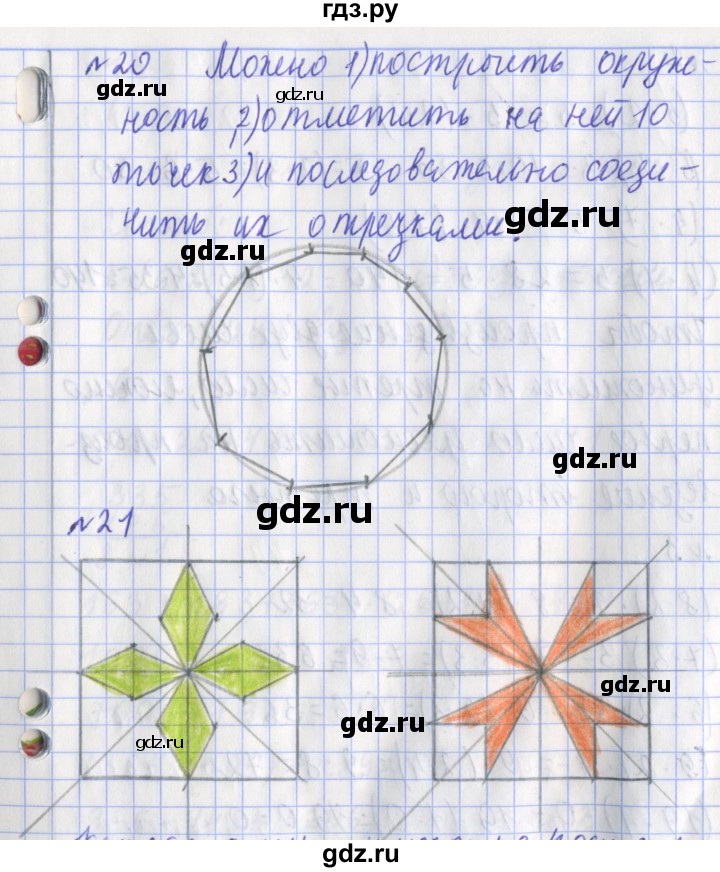 гдз.ру
№20 Можно 1) построить окруж-
gdz.ru gdz.ru
ность, 2) отметить на ней 10
точек 3) и последовательно соеди-
нить их отрезками.
gdz.ru
gdz.ru
gdz.ru
gdz.ru
№21
gdz.ru
gdz.ru
gdz.ru
gdz.ru